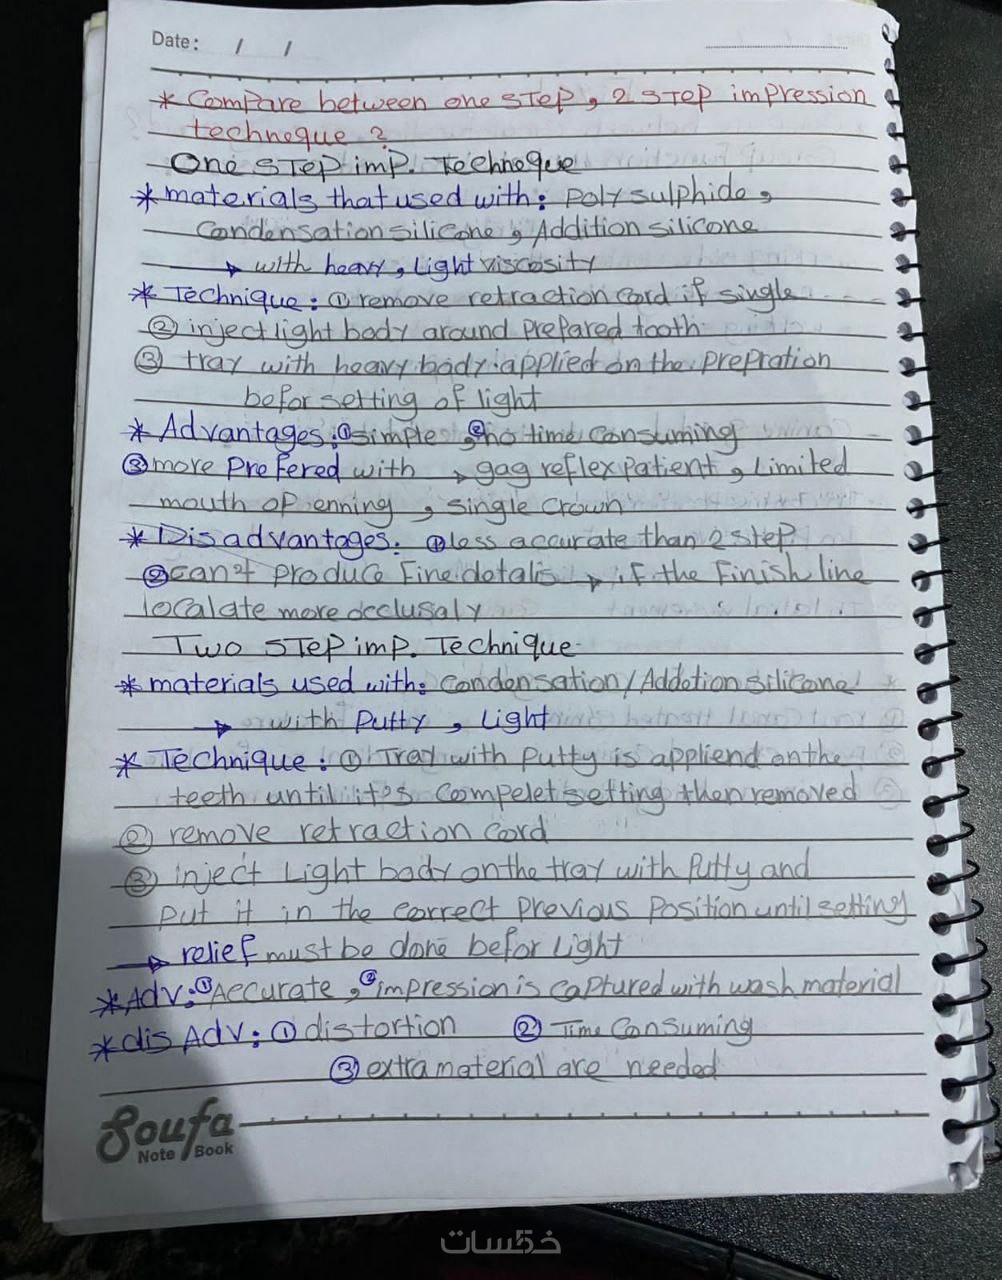 Date: / /
* Compare between one step, 2 step impression
techneque ?
One step imp. techneque
* materials that used with: Polysulphide,
Condensation silicone, Addition silicone
→ with heavy, Light viscosity
* Technique: ① remove retraction cord if single
② inject light body around prepared tooth
③ tray with heavy body applied on the prepration
befor setting of light
* Advantages: ① simple, ② no time consuming
③ more prefered with → gag reflex patient, Limited
mouth openning, single crown
* Disadvantages: ① less accurate than 2 step
② can't produce fine detalis → if the finish line
localate more occlusaly
Two step imp. Technique
* materials used with: Condensation/Addotion silicone
→ with putty, Light
* Technique: ① Tray with putty is appliend on the
teeth until it's compelet setting then removed
② remove retraction cord
③ inject Light body on the tray with putty and
put it in the correct previous position until setting
→ relief must be done befor light
* Adv: ① Accurate, ② impression is captured with wash material
* dis Adv: ① distortion ② Time consuming
③ extra material are needed
Soufa
Note Book
خمسات